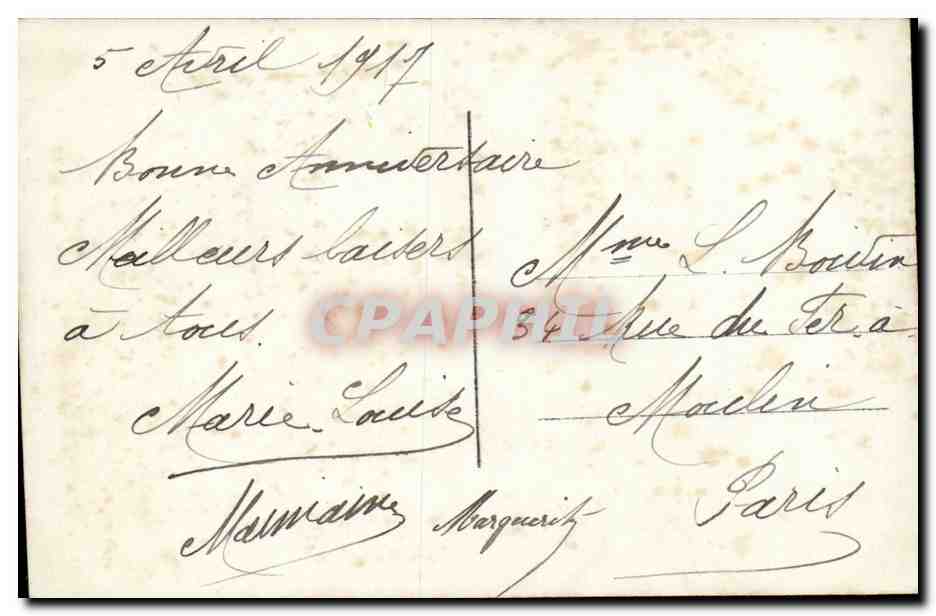 5 Avril 1917
Bonne Anniversaire
Meilleurs baisers
à tous.
Marie-Louise
Marguerite
Mme L. Boutin
34 Rue du Fer à
Moulin
Paris
CPAPHIL